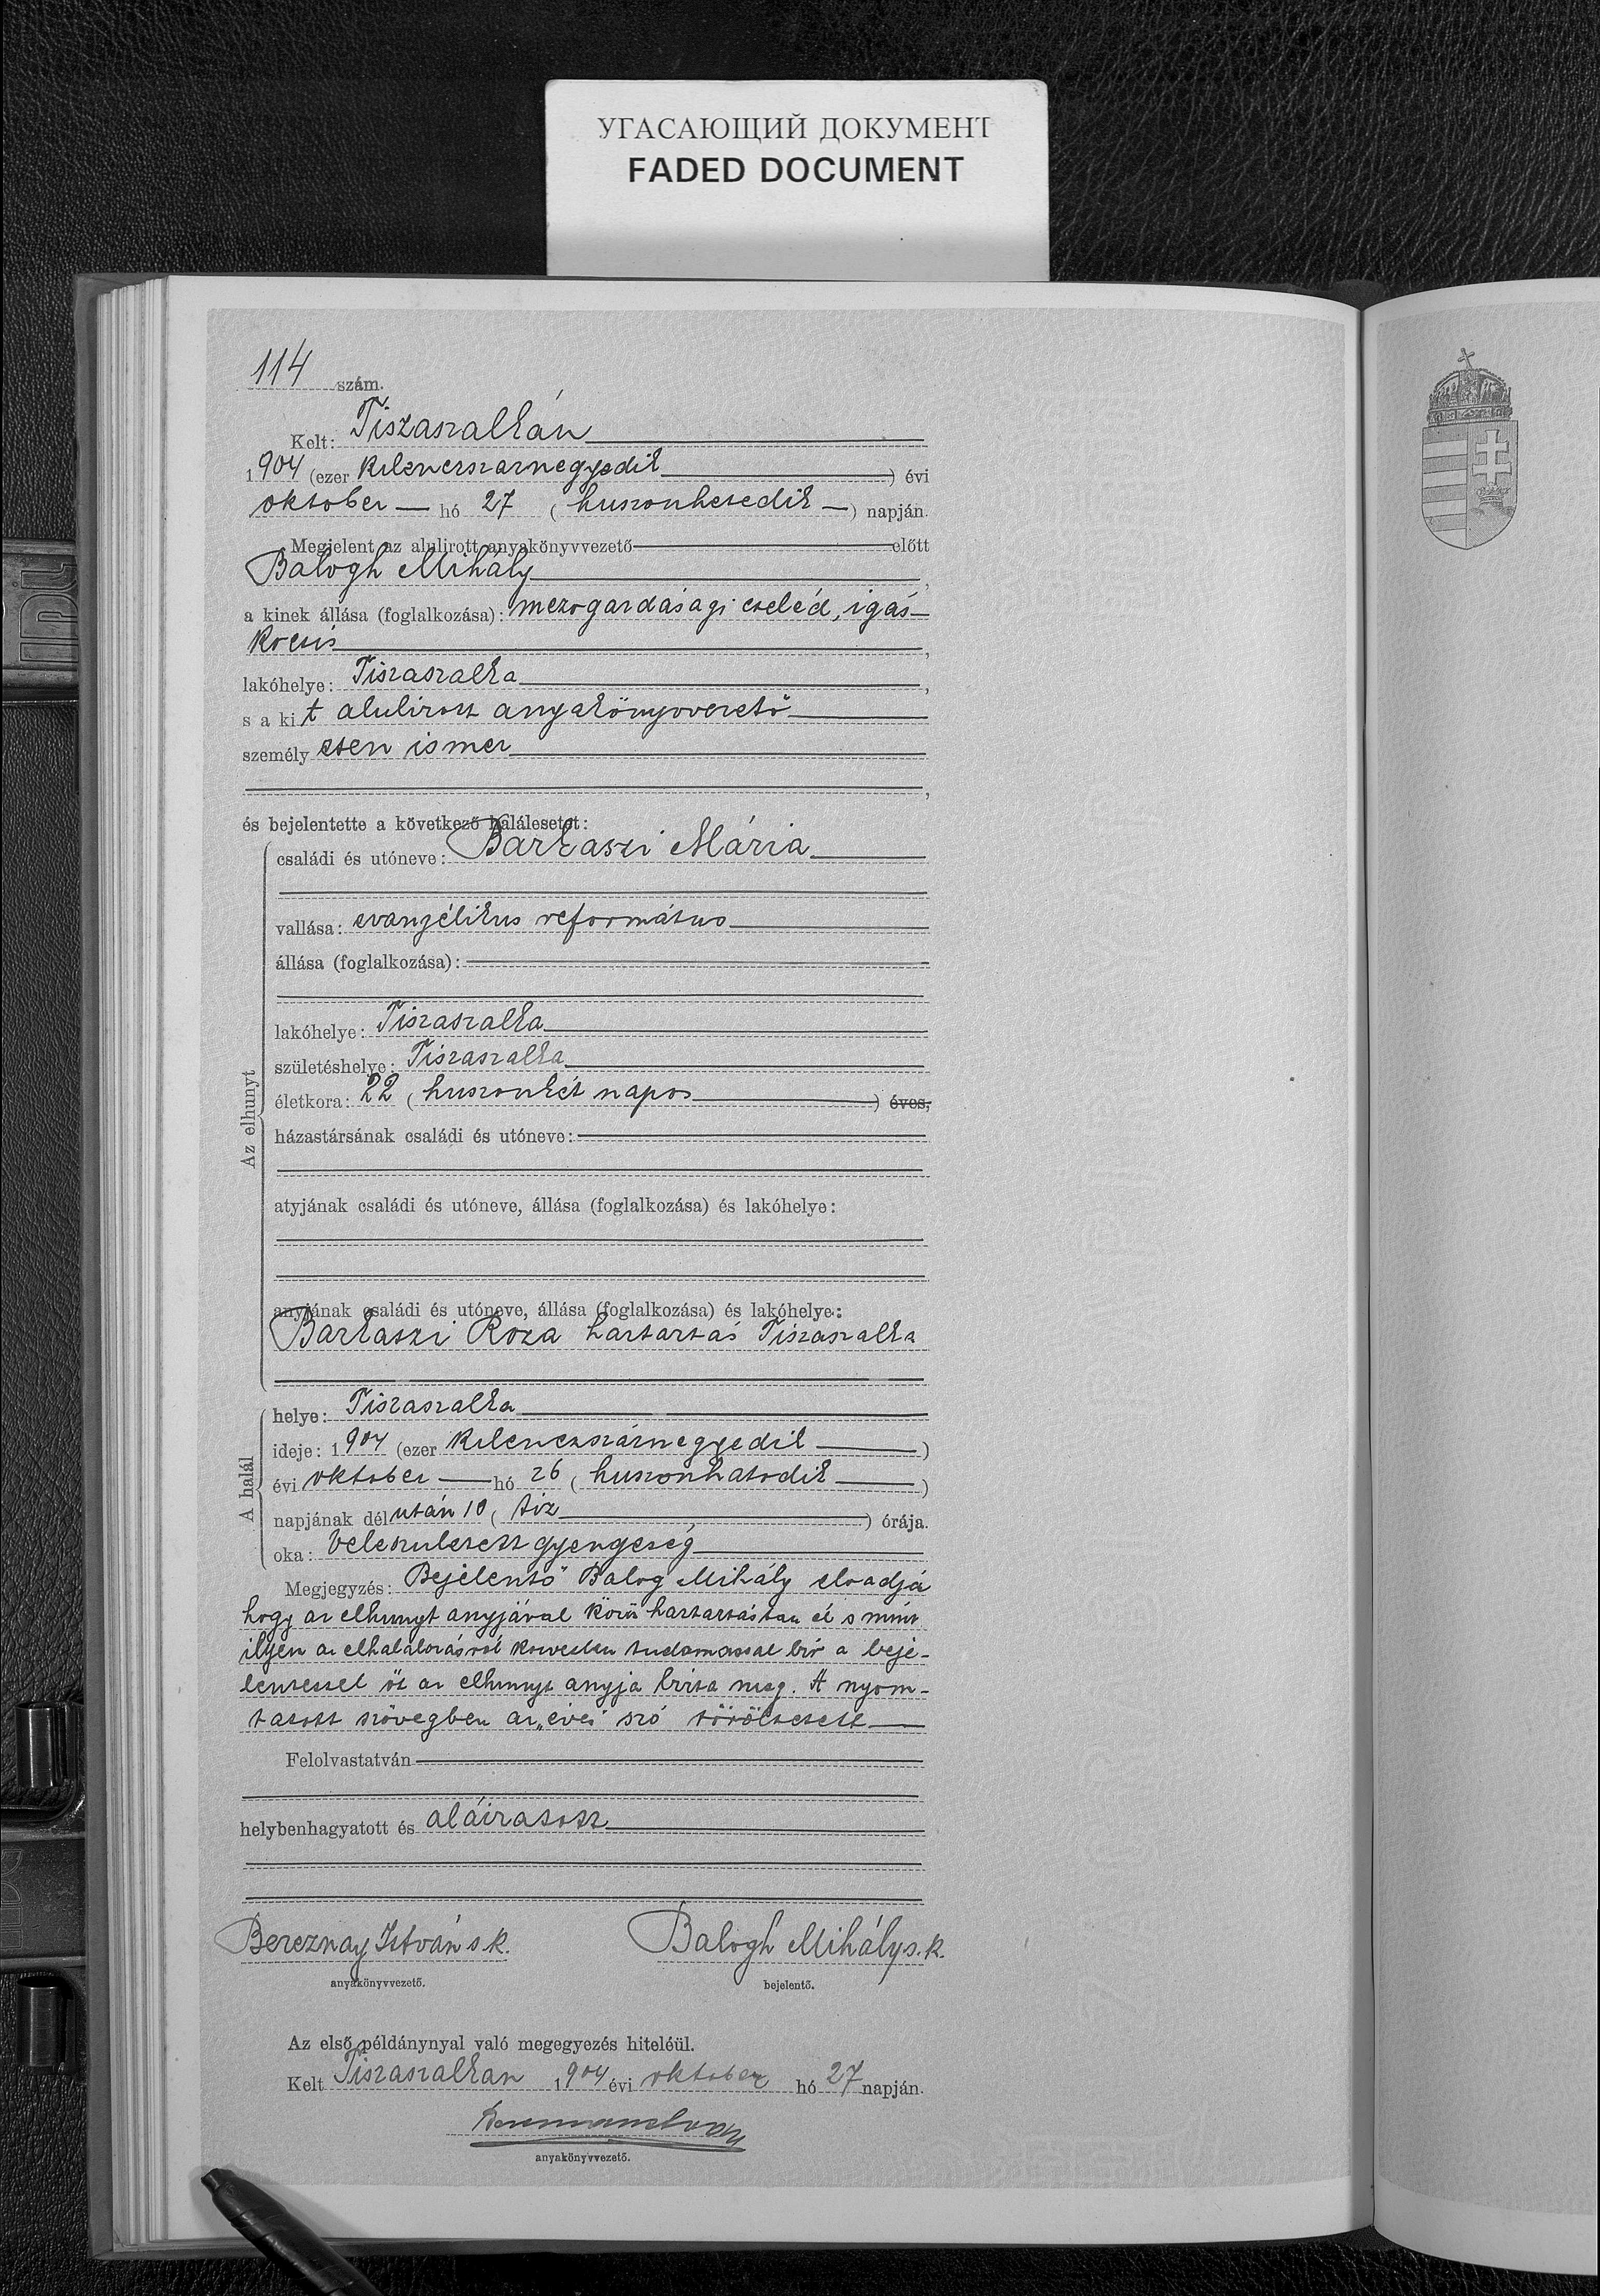 УГАСАЮЩИЙ ДОКУМЕНТ
FADED DOCUMENT
114 szám.
Kelt: Tiszaszalkán
1904 (ezer kilenczszáznegyedik) évi
oktober hó 27 (huszonhetedik) napján.
Megjelent az alulirott anyakönyvvezető előtt
Balogh Mihály,
a kinek állása (foglalkozása): mezogazdasagi cseléd, igás
kocsis,
lakóhelye: Tiszaszalka,
s a kit alulirott anyakönyvvezető
személyesen ismer
,
és bejelentette a következő halálesetet:
családi és utóneve: Barkaszi Mária
vallása: evangélikus református
állása (foglalkozása):
lakóhelye: Tiszaszalka
születéshelye: Tiszaszalka
életkora: 22 (huszonkét napos) éves,
házastársának családi és utóneve:
Az elhunyt
atyjának családi és utóneve, állása (foglalkozása) és lakóhelye:
anyjának családi és utóneve, állása (foglalkozása) és lakóhelye:
Barkaszi Roza haztartás Tiszaszalka
helye: Tiszaszalka
ideje: 1904 (ezer kilenczszáznegyedik)
évi oktober hó 26 (huszonhatodik)
A halál
napjának délután 10 (tiz) órája.
oka: veleszuletett gyengeség
Megjegyzés: Bejelentő Balog Mihály eloadja
hogy az elhunyt anyjával közös haztartásban él s mint
ilyen az elhalálozásról közvetlen tudomással bir a beje-
lentessel őt az elhunyt anyja bizta meg. A nyom-
tatott szövegben az „éves" szó töröltetett
Felolvastatván
helybenhagyatott és aláiratott
Bereznay István s.k. Balogh Mihály s.k.
anyakönyvvezető. bejelentő.
Az első példánynyal való megegyezés hiteléül.
Kelt Tiszaszalkan 1904 évi oktober hó 27 napján.
anyakönyvvezető.